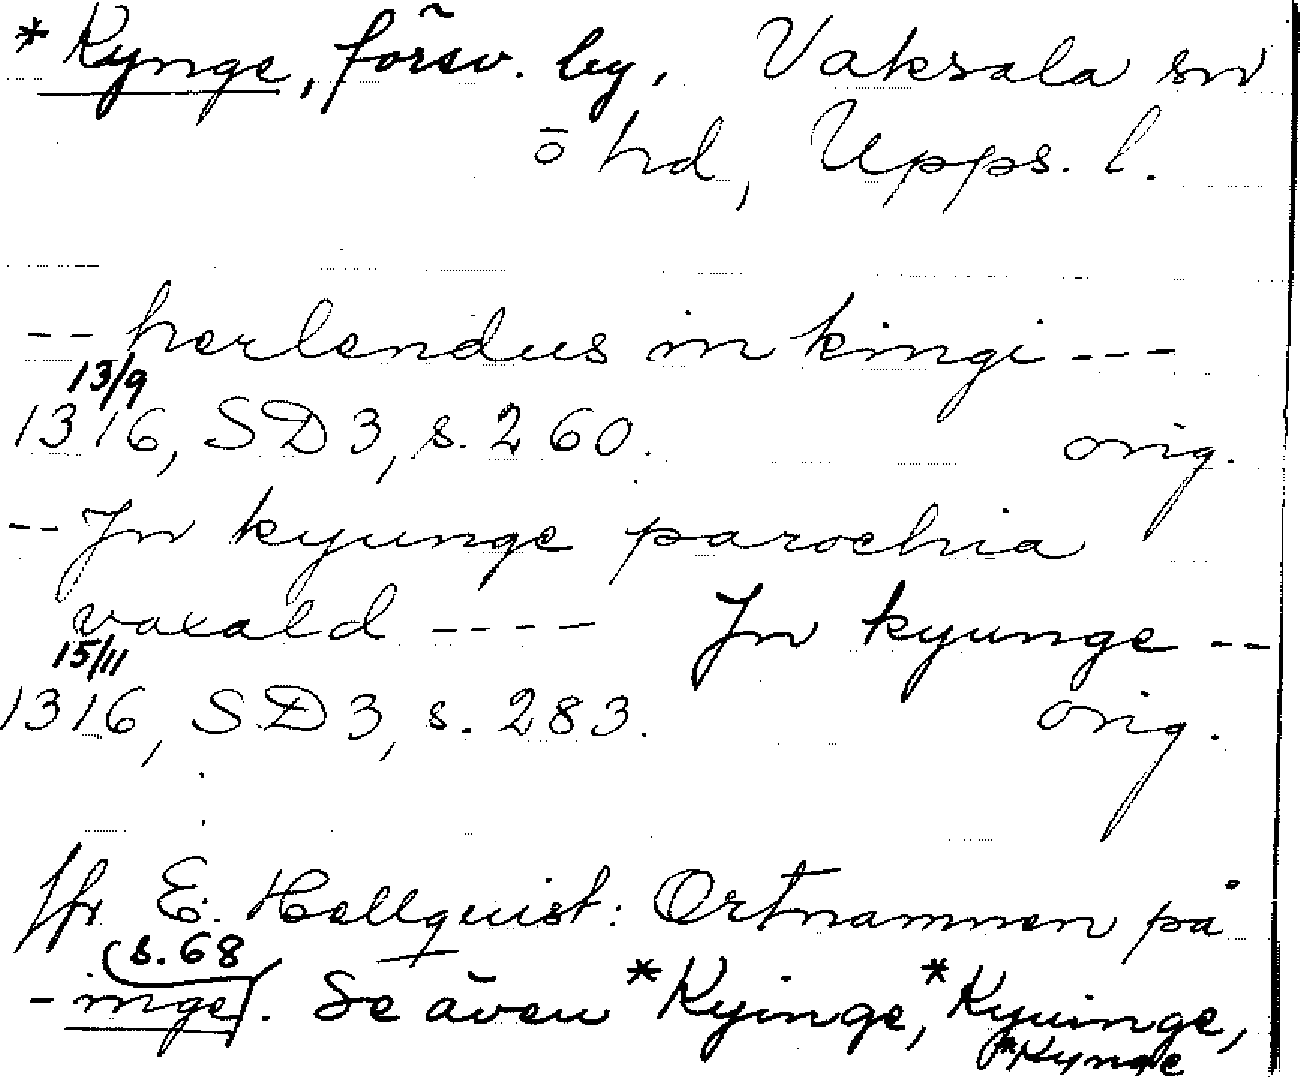 * Kynge, försv. by, Vaksala sn
ö hd, Upps. l.
-- herlendus in kingi ---
13/9
1316, SD 3, s. 260. orig.
-- Jn kyunge parochia
vaxald ---- Jn kyunge --
15/11
1316, SD 3, s. 283. orig.
Jfr E. Hellquist: Ortnamnen på
s. 68
- inge. Se även *Kyinge, *Kyuinge,
*Kynge